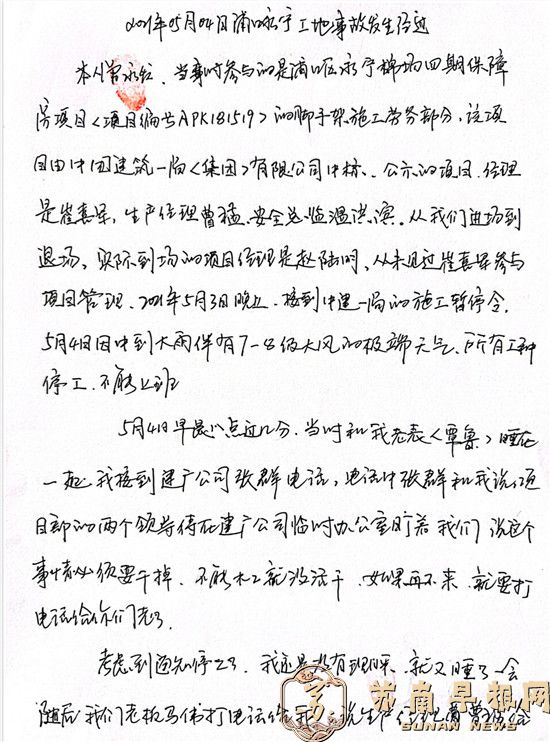 2021年05月04日浦口永宁工地事故发生经过
本人曾永红、当事时参与的是浦口区永宁棉场四期保障
房项目<项目编号APK181519>的脚手架施工劳务部分,该项
目由中国建筑一局<集团>有限公司中标、公示的项目经理
是崔喜军,生产经理曹猛、安全总监温洪滨。从我们进场到
退场,实际到场的项目经理是赵陆明、从未见过崔喜军参与
项目管理、2021年5月3日晚上、接到中建一局的施工暂停令,
5月4日因中到大雨伴有7-8级大风的极端天气、所有工种
停工、不能上班
5月4日早晨八点过几分、当时和我老表<覃鲁>睡在
一起,我接到建广公司张群电话,电话中张群和我说项
目部的两个领导待在建广公司临时办公室盯着我们、说这个
事情必须要干掉、不能木工就没活干、如果再不来、就要打
电话给你们老
考虑到通知停工了、我还是没有理睬、就又睡了一会
随后我们老板马伟打电话给我、说生产经理曹
苏南早报网
SUNAN NEWS